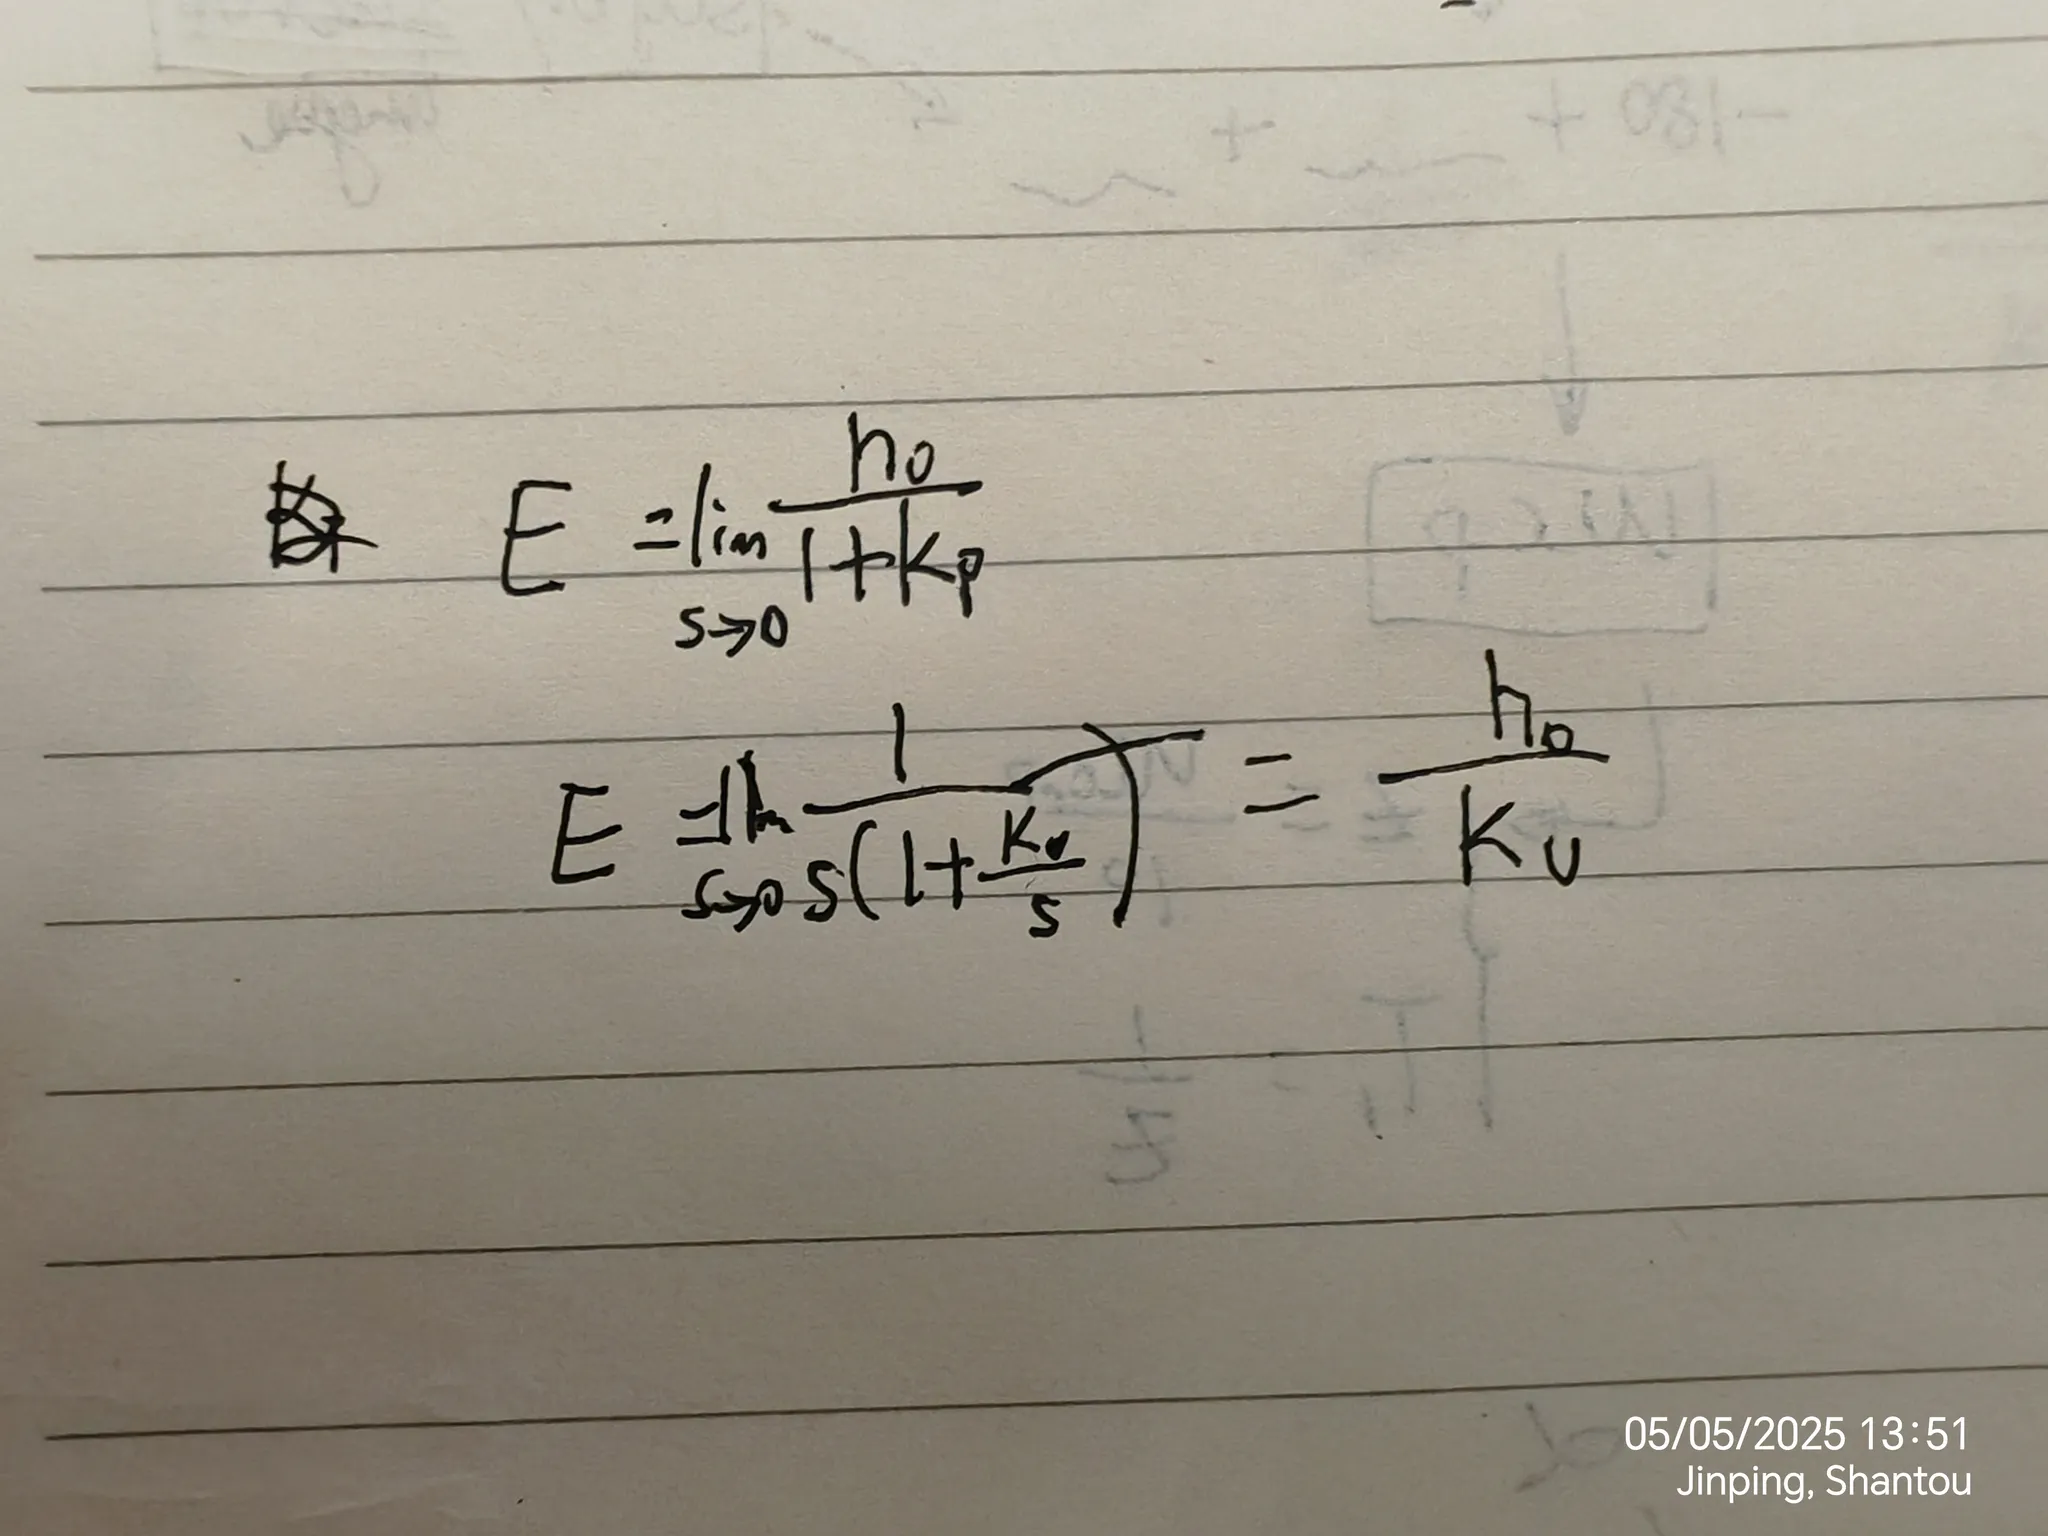 E = lim s→0 h0 / (1 + Kp)
E = lim s→0 1 / (s(1 + Kv/s)) = h0 / Kv
05/05/2025 13:51
Jinping, Shantou